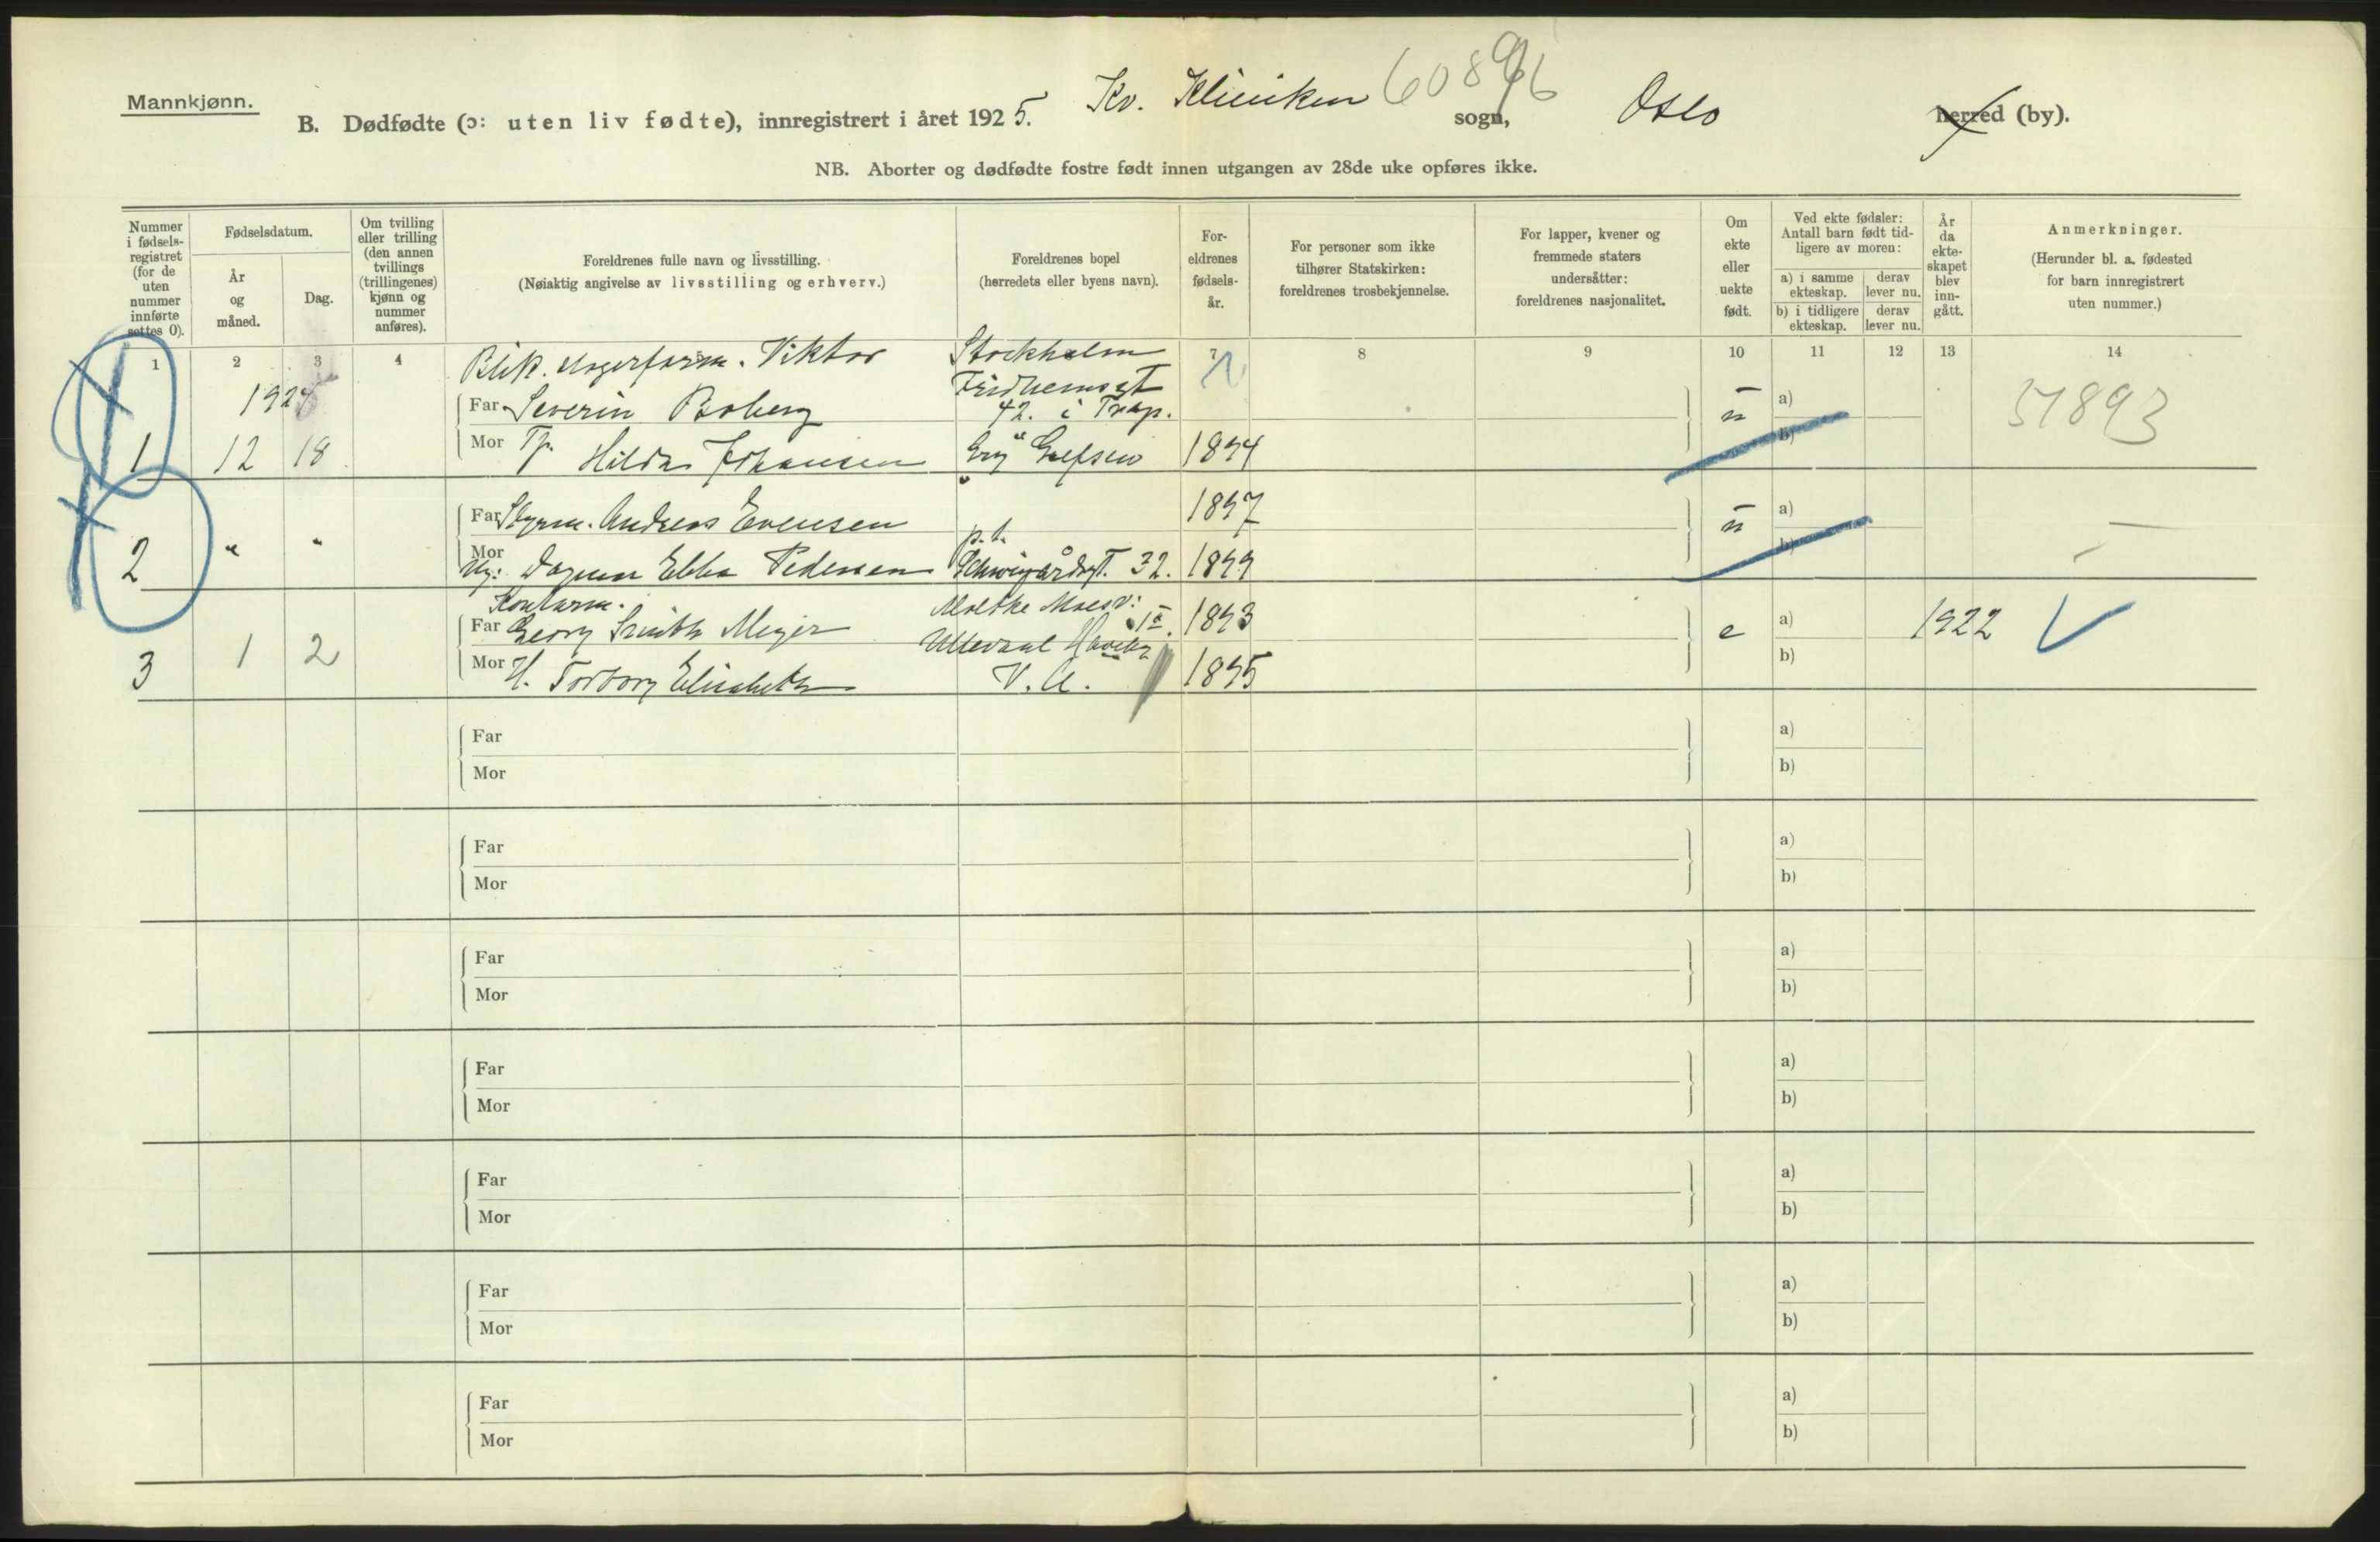 Mannkjønn.
B. Dødfødte (ɔ: uten liv fødte), innregistrert i året 1925. Kv. Kliniken sogn, Oslo herred (by).
NB. Aborter og dødfødte fostre født innen utgangen av 28de uke opføres ikke.
Nummer i fødsels-registret (for de uten nummer innførte settes 0).
Fødselsdatum.
År og måned.
Dag.
Om tvilling eller trilling (den annen tvillings (trillingenes) kjønn og nummer anføres).
Foreldrenes fulle navn og livsstilling.
(Nøiaktig angivelse av livsstilling og erhverv.)
Foreldrenes bopel
(herredets eller byens navn).
For-eldrenes fødsels-år.
For personer som ikke tilhører Statskirken: foreldrenes trosbekjennelse.
For lapper, kvener og fremmede staters undersåtter: foreldrenes nasjonalitet.
Om ekte eller uekte født.
Ved ekte fødsler: Antall barn født tid-ligere av moren:
a) i samme ekteskap.
derav lever nu.
b) i tidligere ekteskap.
derav lever nu.
År da ekte-skapet blev inn-gått.
Anmerkninger.
(Herunder bl. a. fødested for barn innregistrert uten nummer.)
1 2 3 4 7 8 9 10 11 12 13 14
Viktor Stockholm
1924 Far Severin Boberg 42. ū a) 51893
1 12 18 Mor Tp. Hilda Johansen Grefsen 1894 b)
Far Styrm. Andreas Evensen 1897 ū a)
p. t.
2 " " Mor Ug: Dagmar Ebba Pedersen Schweigårdsgt. 32. 1899 b)
Moltke Moesv:
Far Georg Smith Meyer 1893 e a) 1922
Ullevaal Haveby
3 1 2 Mor H. Torborg Elisabeth V. A. 1895 b)
Far a)
Mor b)
Far a)
Mor b)
Far a)
Mor b)
Far a)
Mor b)
Far a)
Mor b)
Far a)
Mor b)
Far a)
Mor b)